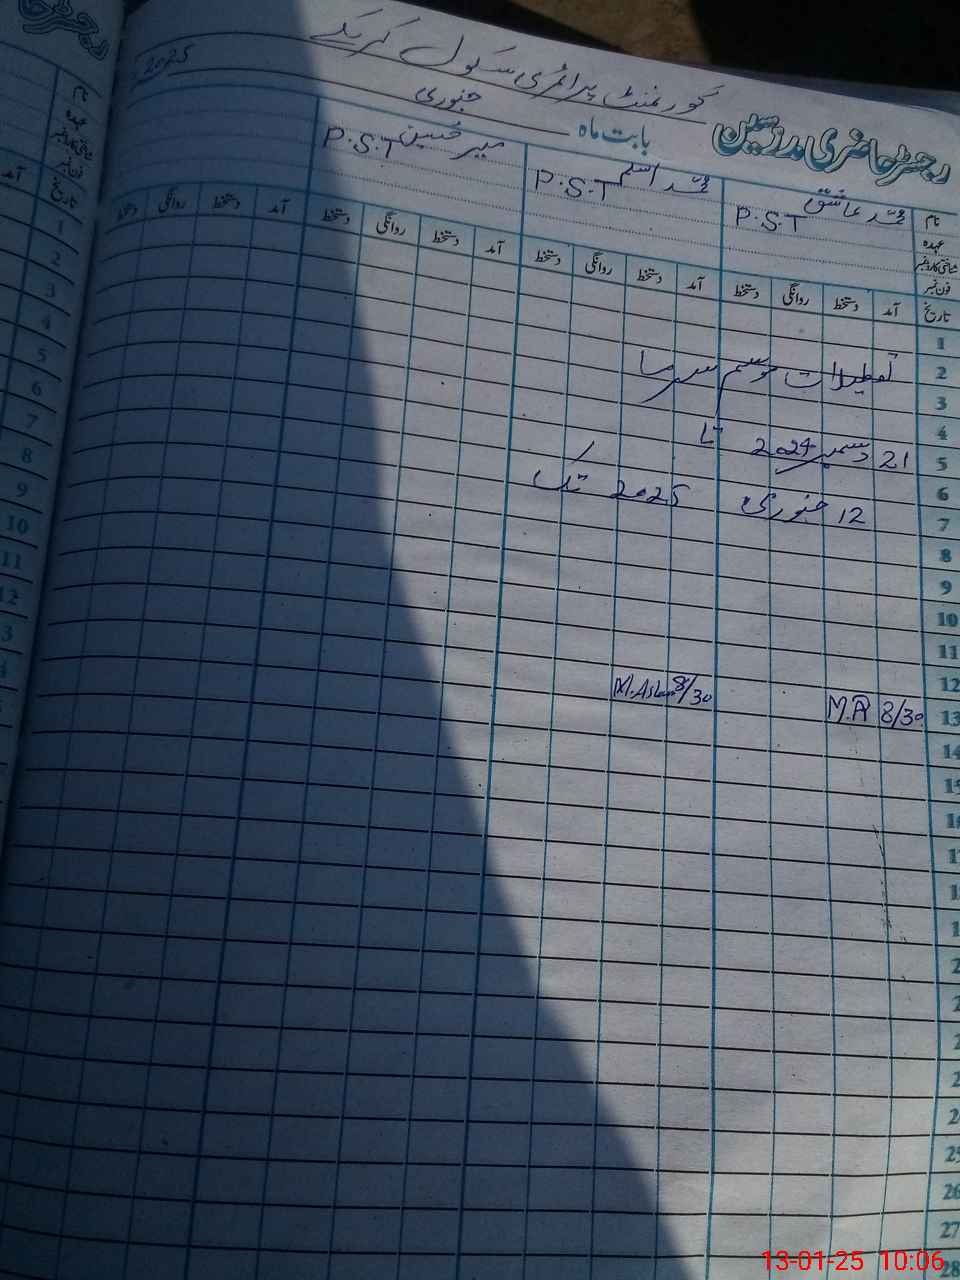 گورنمنٹ پرائمری سکول
رجسٹر حاضری مدرسین بابت ماہ جنوری 2025
نام محمد عاشق محمد اسلم میر حسین
عہدہ P.S.T P.S.T P.S.T
شناختی کارڈ نمبر
فون نمبر
تاریخ آمد دستخط روانگی دستخط آمد دستخط روانگی دستخط آمد دستخط روانگی دستخط آمد دستخط روانگی دستخط
1
2 تعطیلات موسم سرما
3
4
5 21 دسمبر 2024 تا
6
7 12 جنوری 2025 تک
8
9
10
11
12
13 8/30 M.A 8/30 M.Aslam
14
25
26
27
28
رجسٹر
نام
عہدہ
شناختی کارڈ نمبر
فون نمبر
تاریخ آمد
1
2
3
4
5
6
7
8
9
10
11
12
13-01-25 10:06